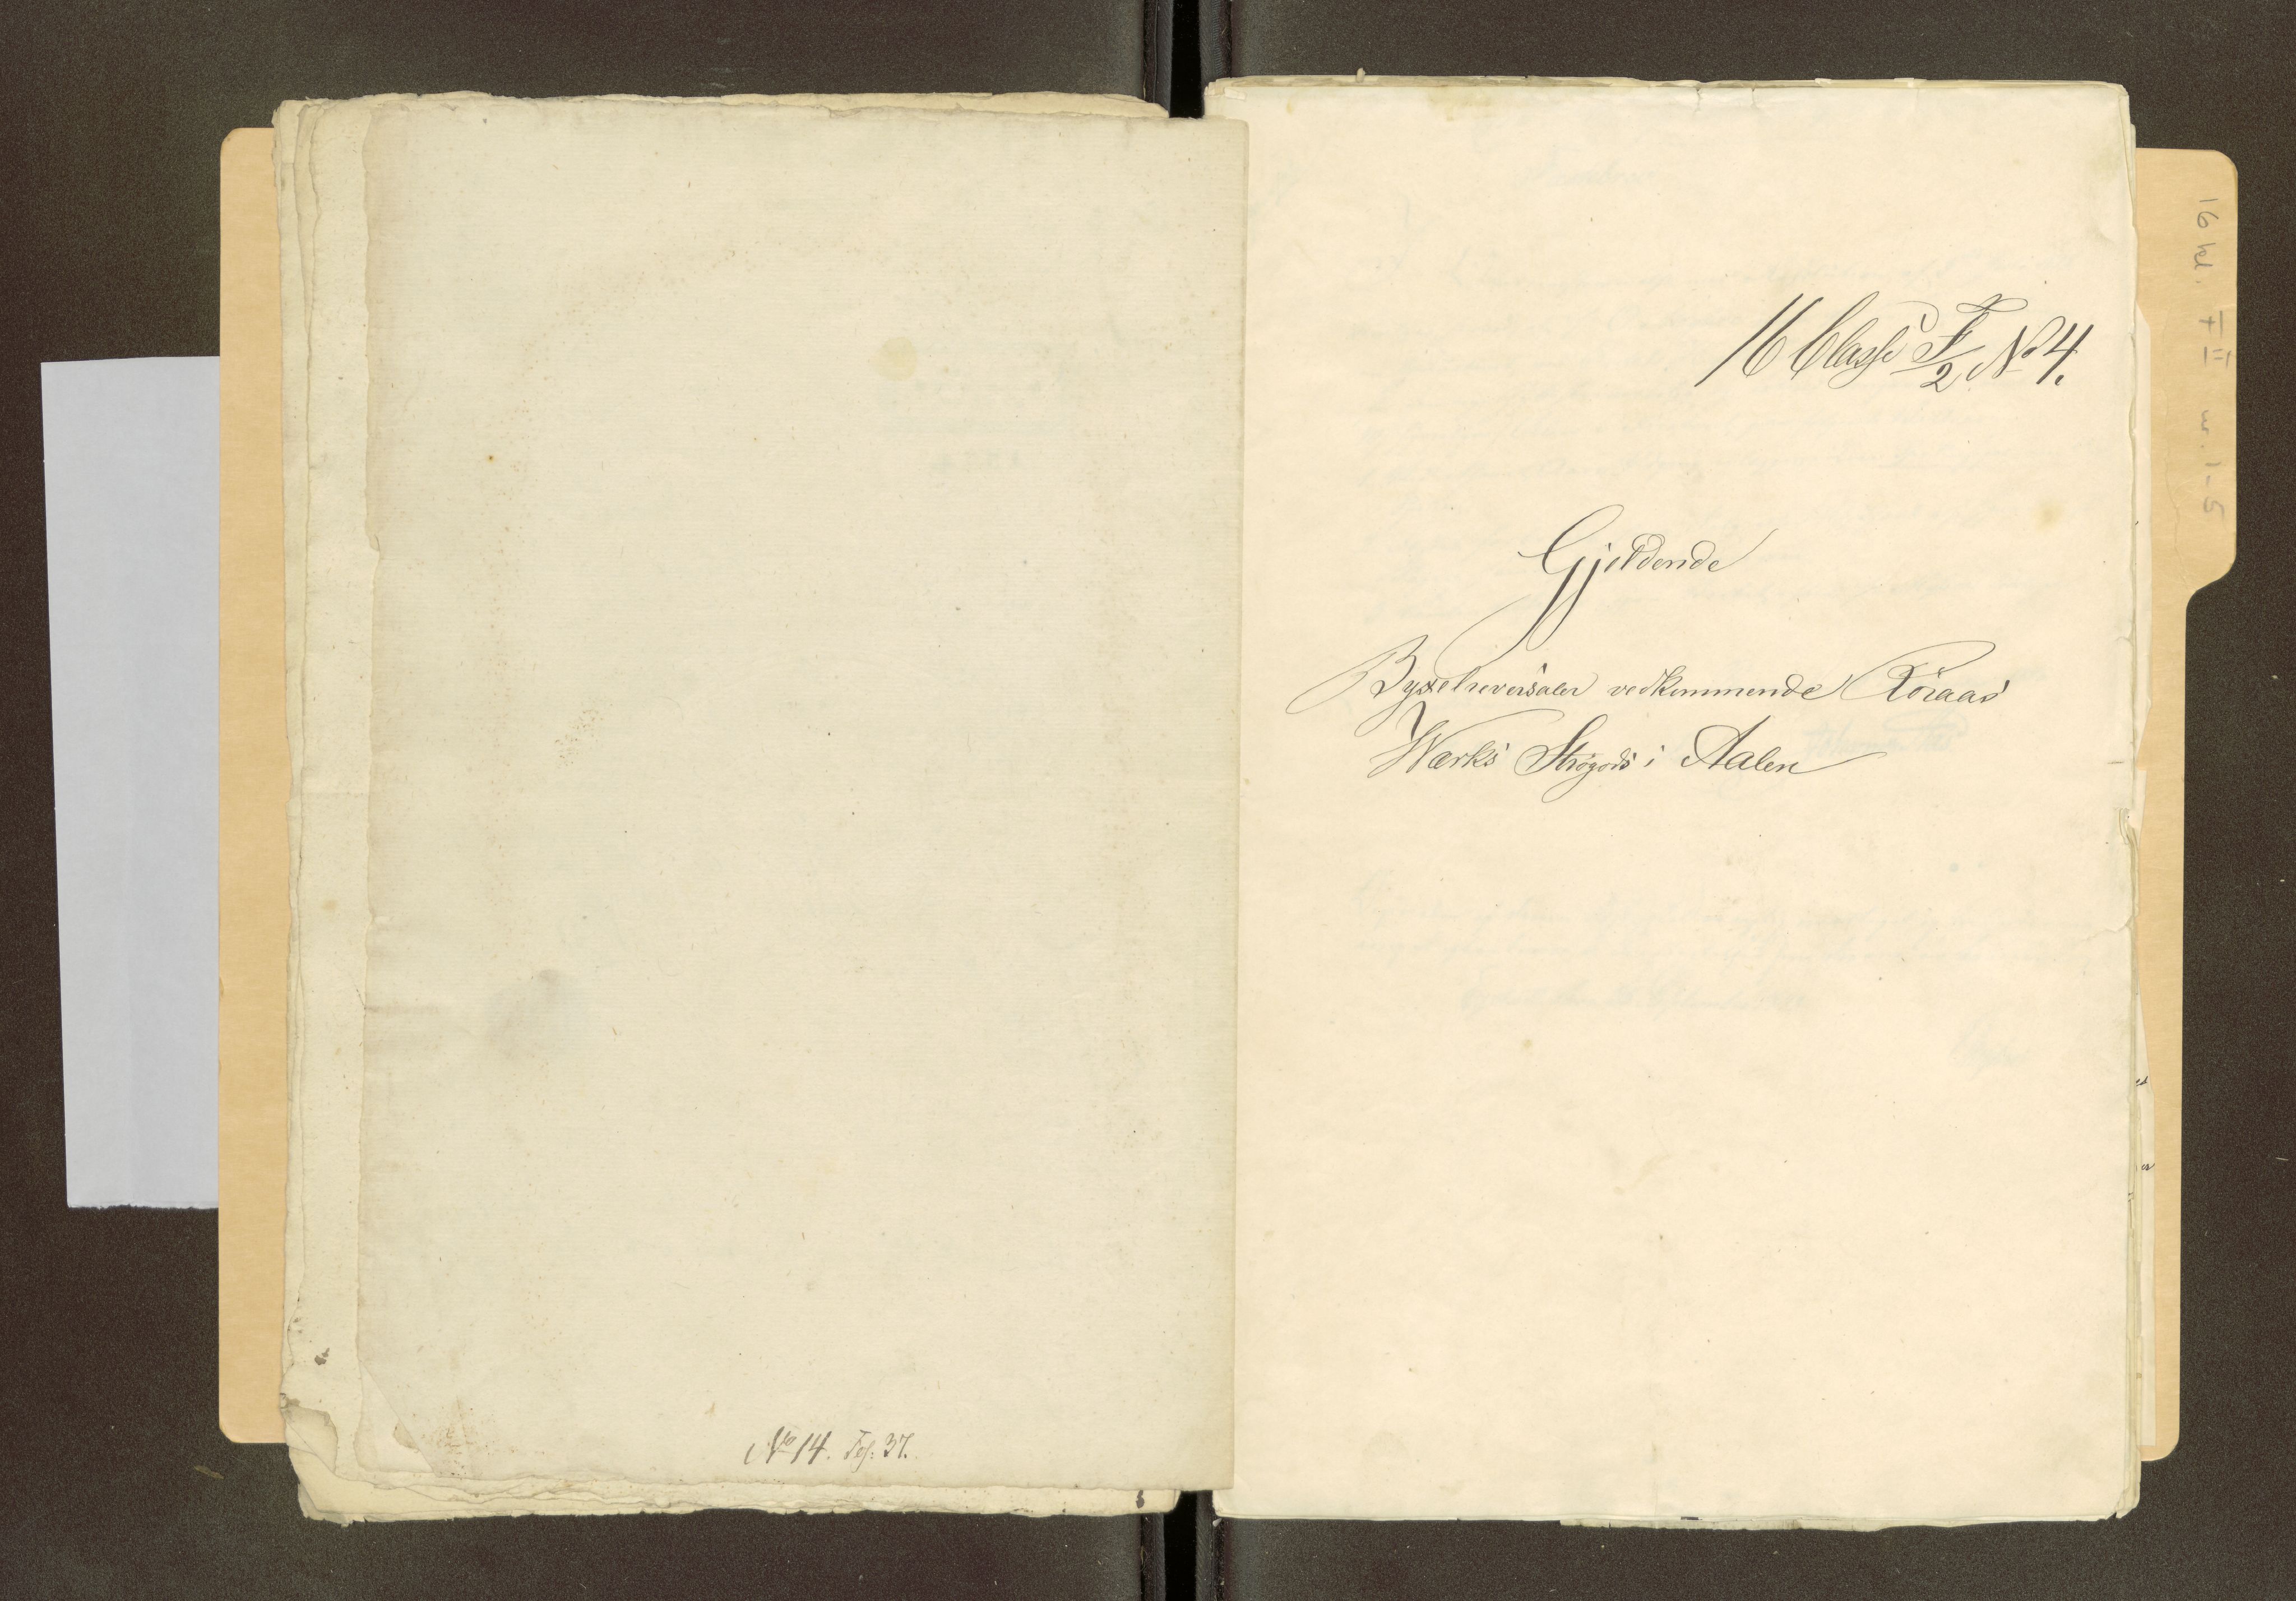 No 14. Fol: 37.
16 Classe F/2 No 4.
Gjeldende
Byxelreversaler vedkommende Röraas
Værks Strögods i Aalen
16 kl. F II nr. 1-5